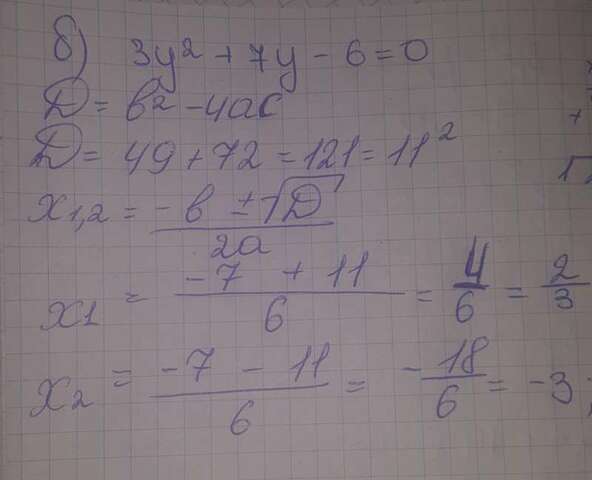 б) 3y² + 7y - 6 = 0
D = b² - 4ac
D = 49 + 72 = 121 = 11²
x1,2 = (-b ± √D) / 2a
x1 = (-7 + 11) / 6 = 4/6 = 2/3
x2 = (-7 - 11) / 6 = -18/6 = -3;